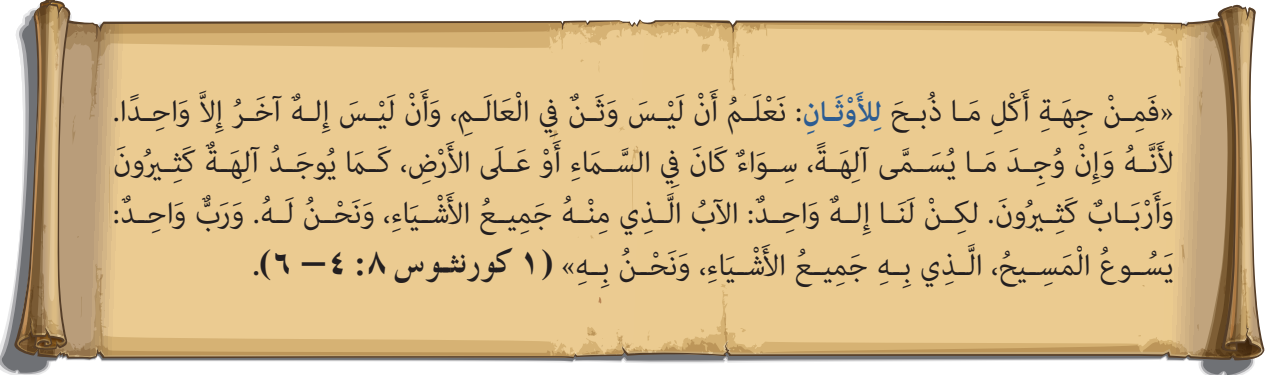 «فَمِنْ جِهَةِ أَكْلِ مَا ذُبِحَ لِلأَوْثَانِ: نَعْلَمُ أَنْ لَيْسَ وَثَنٌ فِي الْعَالَمِ، وَأَنْ لَيْسَ إِلهٌ آخَرُ إِلاَّ وَاحِدًا.
لأَنَّهُ وَإِنْ وُجِدَ مَا يُسَمَّى آلِهَةً، سِوَاءٌ كَانَ فِي السَّمَاءِ أَوْ عَلَى الأَرْضِ، كَمَا يُوجَدُ آلِهَةٌ كَثِيرُونَ
وَأَرْبَابٌ كَثِيرُونَ. لكِنْ لَنَا إِلهٌ وَاحِدٌ: الآبُ الَّذِي مِنْهُ جَمِيعُ الأَشْيَاءِ، وَنَحْنُ لَهُ. وَرَبٌّ وَاحِدٌ:
يَسُوعُ الْمَسِيحُ، الَّذِي بِهِ جَمِيعُ الأَشْيَاءِ، وَنَحْنُ بِهِ» (١ كورنثوس ٨: ٤ – ٦).